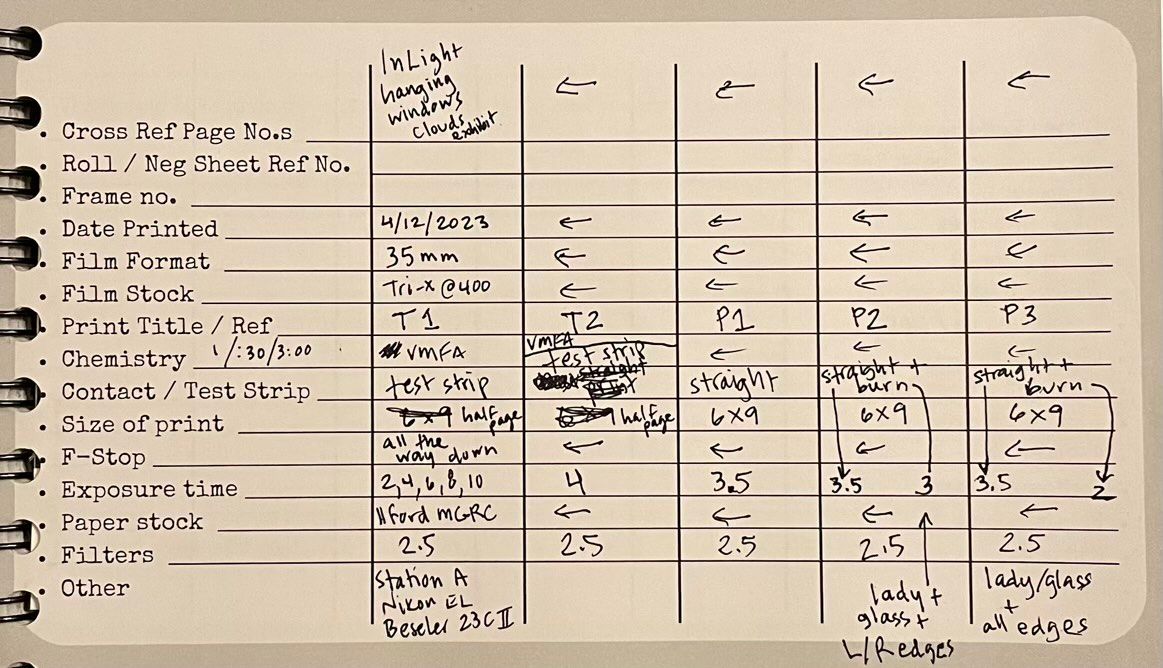 InLight
hanging
windows
clouds
exhibit
← ← ← ←
• Cross Ref Page No.s
• Roll / Neg Sheet Ref No.
• Frame no.
• Date Printed 4/12/2023 ← ← ← ←
• Film Format 35mm ← ← ← ←
• Film Stock Tri-X @400 ← ← ← ←
• Print Title / Ref T1 T2 P1 P2 P3
• Chemistry 1/:30/3:00 VMFA VMFA ← ← ←
• Contact / Test Strip test strip test strip straight straight + burn straight + burn
• Size of print 6x9 half page half page 6x9 6x9 6x9
• F-Stop all the way down ← ← ← ←
• Exposure time 2,4,6,8,10 4 3.5 3.5 3 3.5 2
• Paper stock Ilford MGRC ← ← ← ←
• Filters 2.5 2.5 2.5 2.5 2.5
• Other
Station A
Nikon EL
Beseler 23C II
lady +
glass +
L/R edges
lady/glass
+
all edges